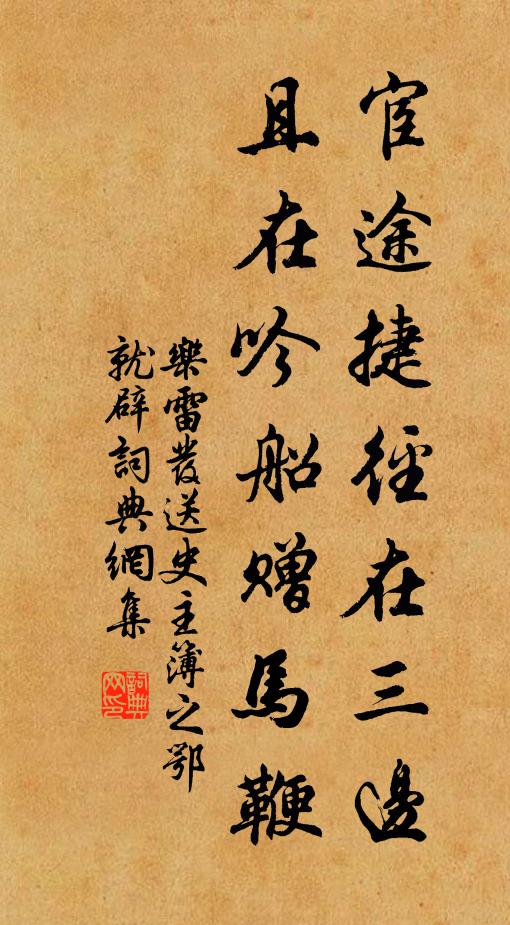 宦途捷徑在三邊
且在吟船贈馬鞭
樂雷發送史主簿之鄂
就辟詞典網集
詞典网印